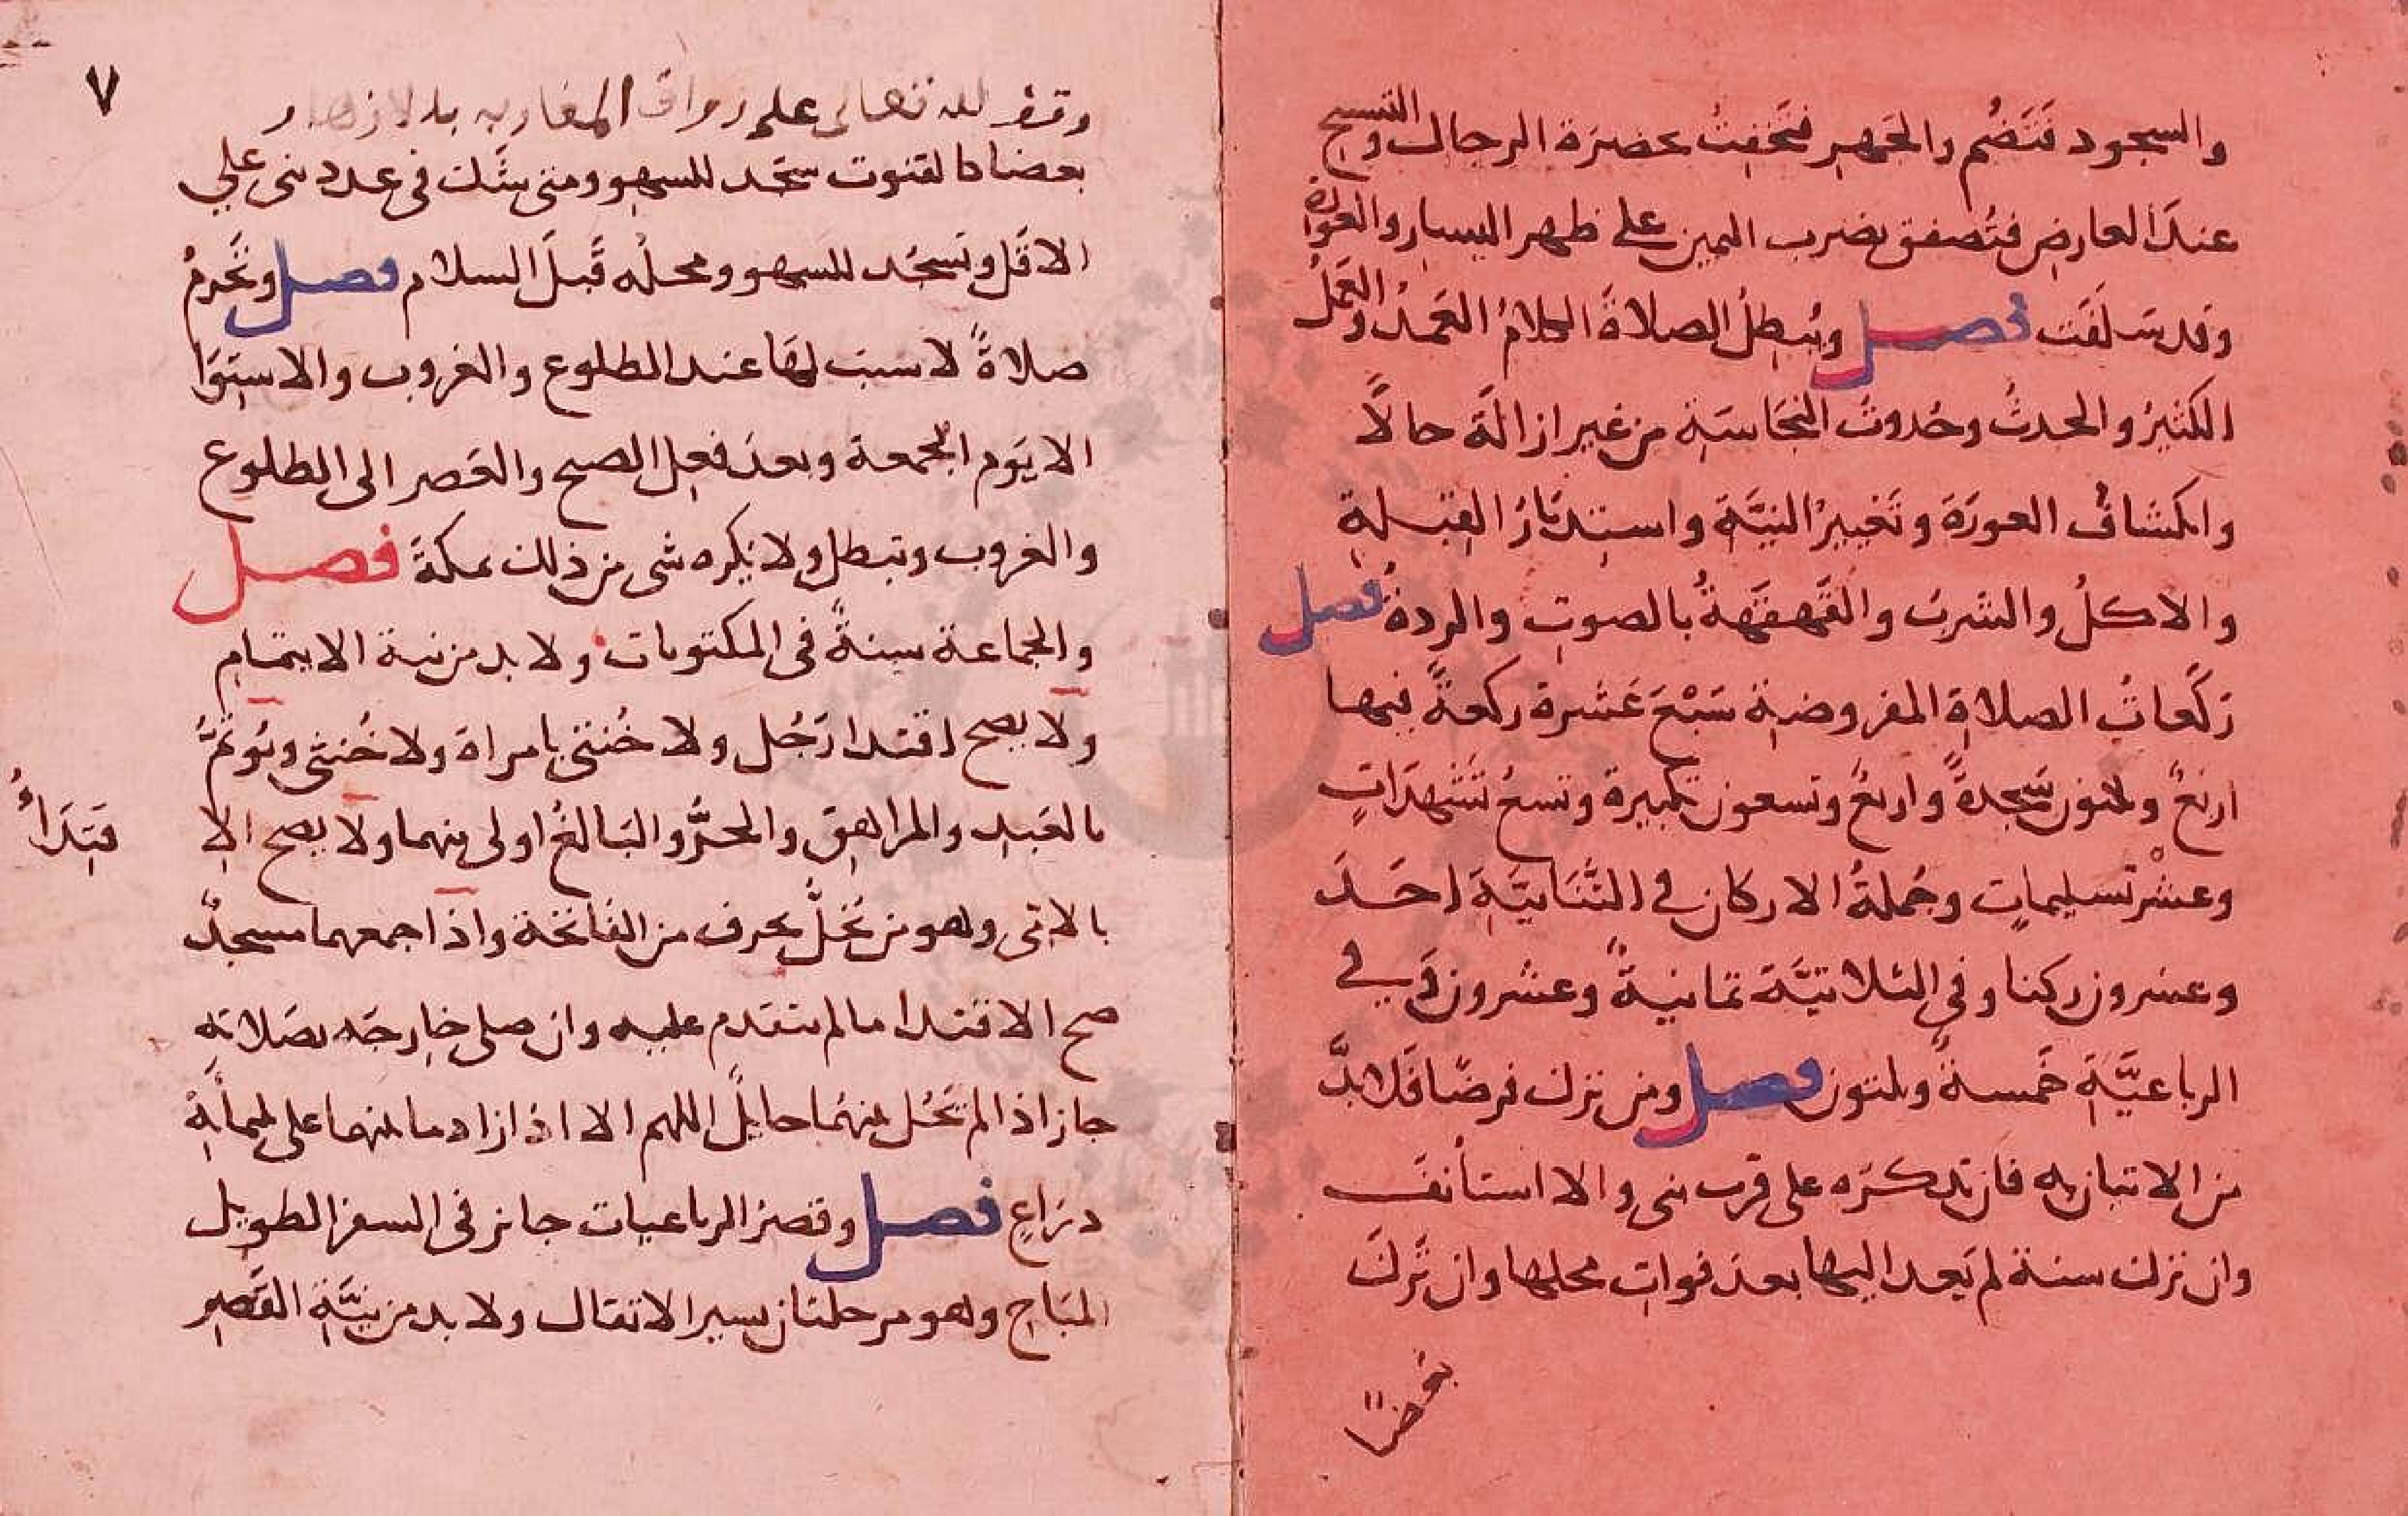 والسجود فَتَضُم والجَهر فتَخفِتُ بحضرَة الرجال والتسبيح
عندَ العارض فتُصفق بضرب اليمين على ظهر اليسار والعورة
وقد سَلَفَت فصل وتُبطِلُ الصلاةَ الكلامُ العَمدُ والعَمَلُ
الكثيرُ والحدثُ وحُدوثُ النجَاسَةِ من غير ازالَة حالاً
وانكشافُ العورَة وتَغييرُ النيَّة واستِدبَارُ القِبلة
والاكلُ والشربُ والقَهقَهةُ بالصوتِ والردةُ فصل
رَكَعاتُ الصلاةِ المفروضةِ سَبْعَ عَشرة ركعةً فيها
اربَعٌ وثلثون سَجدةً واربعٌ وتسعون تكبيرة وتسعُ تَشَهدَاتٍ
وعشْر تسليماتٍ وجُملةُ الاركان في الثُّنَائيَّةِ احَدَ
وعشرون ركنا وفي الثلاثيَّة ثمانيةٌ وعشرون وَفي
الرباعيَّةِ خَمسةٌ وثلثون فصل ومن ترك فرضًا فَلا بدَّ
من الاتيان به فان تذكرَه على قرب بنى والا استأنفَ
وان ترك سنة لم يَعد اليها بعدَ فوات محلها وان تَركَ
بعضًا
٧
وقف لله تعالى على رواق المغاربه بالازهار
بعضا كالقنوت سَجَد للسهو ومتى يشك في عدد بنى على
الاقَل ويَسجُد للسهو ومحلُه قَبلَ السلام فصل وتَحرمُ
صلاةٌ لا سبَبَ لهَا عند الطلوع والغروب والاستِوَا
الا يَوم الجمعة وبعدَ فعل الصبح والعَصر الى الطلوع
والغروب وتبطل ولا يَكره شى من ذلك بمكةَ فصل
والجماعة سنةٌ في المكتوبات ولا بد من نية الايتمام
ولا يصح اقتدا رَجُل ولا خُنثى بامراة ولا خُنثى ويُوتَمُّ
بالعَبد والمراهِق والحرُّ والبَالغُ اولى منهما ولا يصح الا
قتِدَاءُ
بالامّى وهو من يُخلُّ بحرف من الفاتحة واذا جمعهما مسجدٌ
صح الاقتدا ما لم يتقدم عليه وان صلى خارجَه بصَلاته
جاز اذا لم يَحُل بينهُما حايلٌ اللهم الا اذا زاد ما بينهما على ثلثمأيةِ
ذرَاعٍ فصل وقصرُ الرباعيات جايز في السفر الطويل
المبَاح وهو مرحلتان بسير الاثقال ولا بد من نيَّةِ القَصرِ